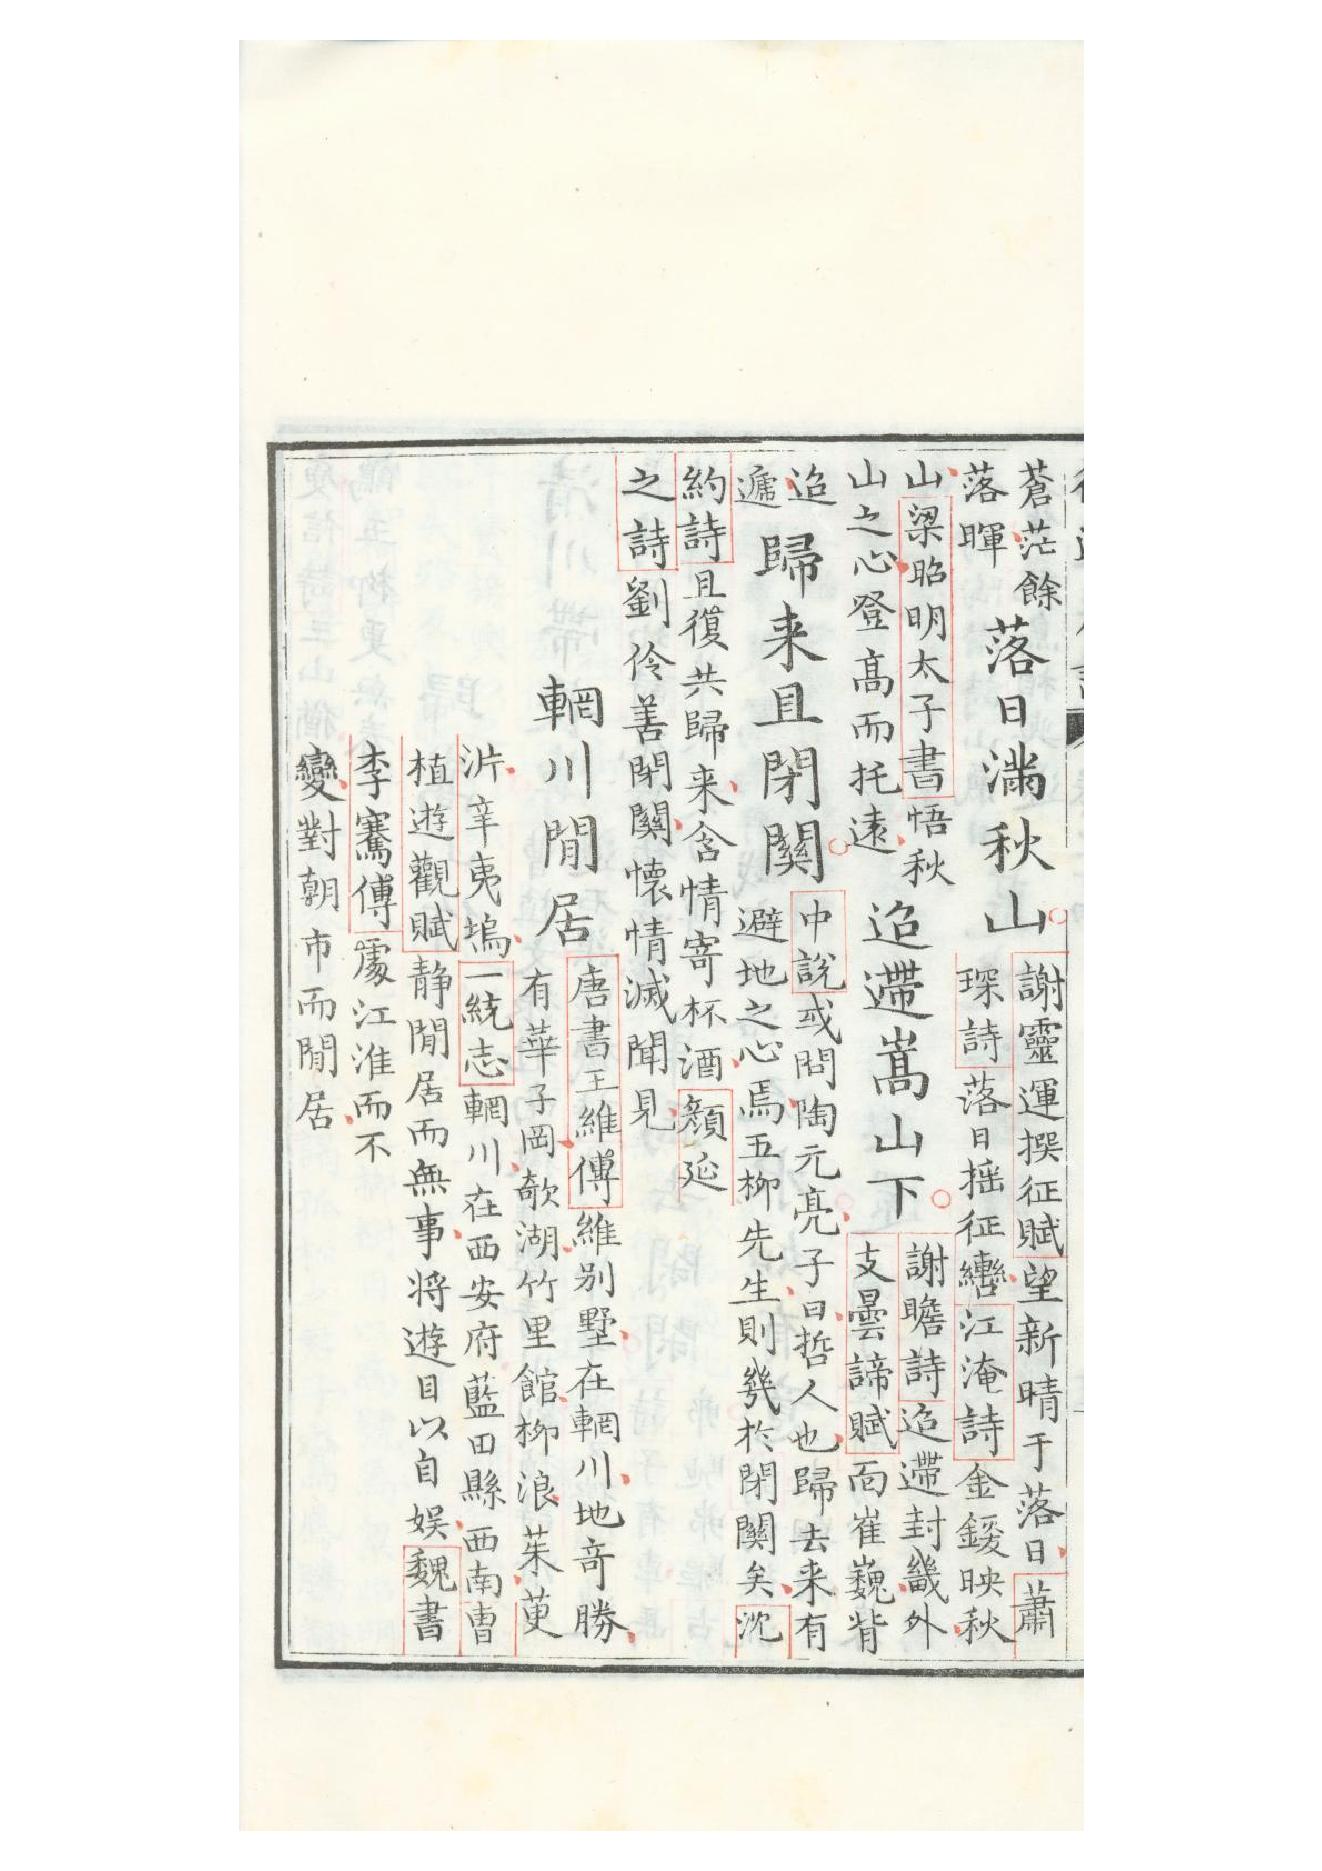 蒼茫餘
落暉
落日滿秋山
謝靈運撰征賦望新晴于落日蕭
琛詩落日揺征轡江淹詩金錽映秋
山梁昭明太子書悟秋
山之心登高而托遠
迢遰嵩山下
謝瞻詩迢遰封畿外
支曇諦賦面崔巍背
迢
遞
歸来且閉關
中說或問陶元亮子曰哲人也歸去来有
避地之心焉五柳先生則幾於閉關矣沈
約詩且復共歸来含情寄杯酒顏延
之詩劉伶善閉關懷情滅聞見
輞川閒居
唐書王維傳維别墅在輞川地竒勝
有華子岡欹湖竹里館柳浪茱萸
沜辛夷塢一統志輞川在西安府藍田縣西南曹
植遊觀賦静閒居而無事将遊目以自娱魏書
李騫傳處江淮而不
變對朝市而閒居